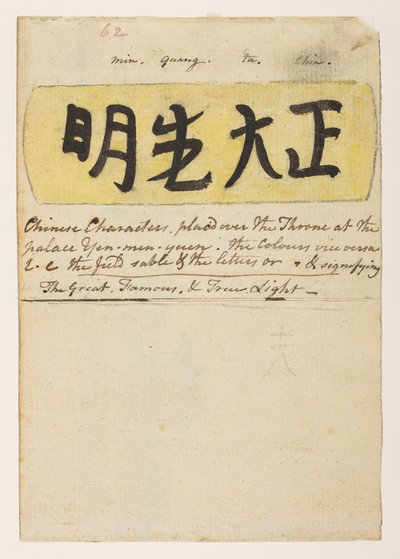 62
min. quang. ta. chin.
正大光明
Chinese Characters, placd over the Throne at the
palace Yen-men-yuen. the Colours vice versa
i.e the field sable & the letters or - & signifying
The Great, Famous, & True Light